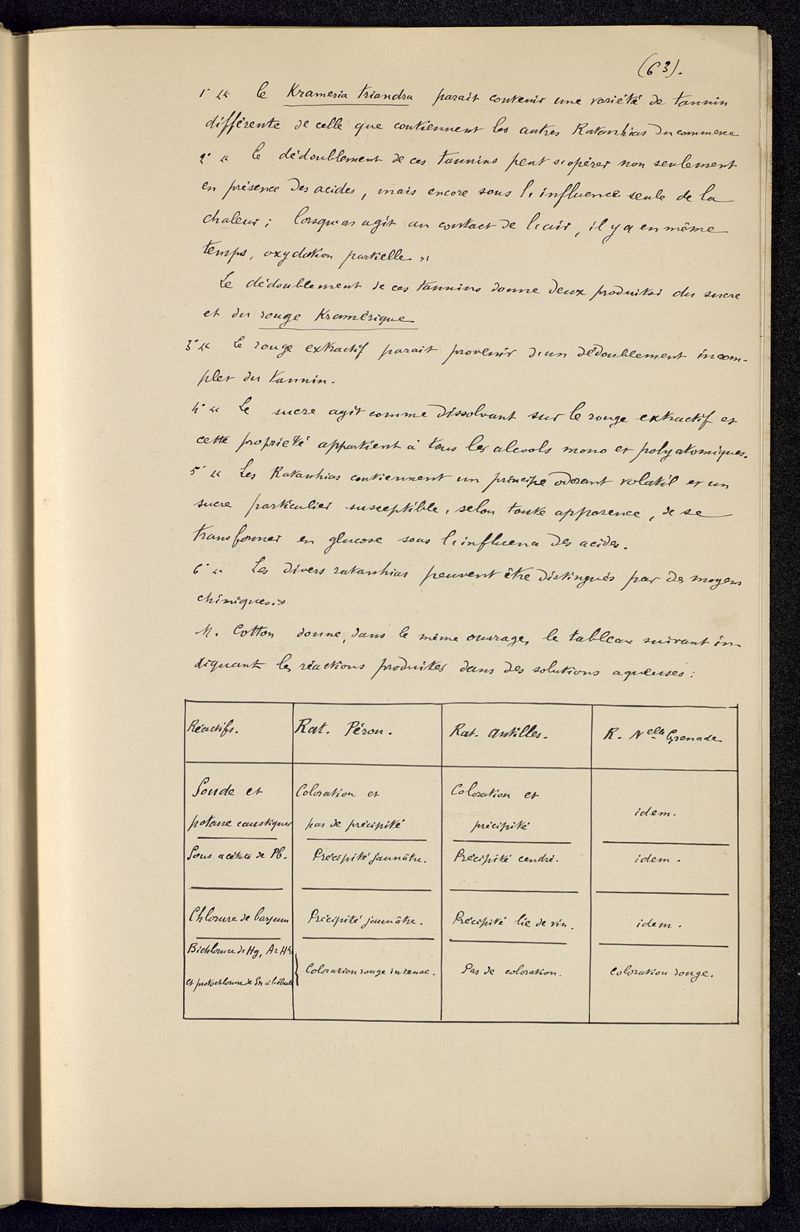 (63).
1° « le Krameria triandra parait contenir une variété de tannin
différente de celle que contiennent les autres Ratanhias du commerce
2° « le dédoublement de ces tannins peut s'opérer non seulement
en présence des acides, mais encore sous l'influence seule de la
chaleur; lorsqu'on agit au contact de l'air, il y a en même
temps, oxydation partielle »
Le dédoublement de ces tannins donne deux produits: du sucre
et du rouge Kramérique
3° « Le rouge extractif parait provenir d'un dédoublement incom-
plet du tannin.
4° « Le sucre agit comme dissolvant sur le rouge extractif et
cette propriété appartient à tous les alcools mono et polyatomiques.
5° « Les Ratanhias contiennent un principe odorant volatil et un
sucre particulier susceptible, selon toute apparence, de se
transformer en glucose sous l'influence des acides.
6° « Les divers ratanhias peuvent être distingués par des moyens
chimiques. »
M. Cotton donne, dans le même ouvrage, le tableau suivant in-
diquant les réactions produites dans des solutions aqueuses:
Réactifs. Rat. Pérou. Rat. Antilles. R. Nelle Grenade
Soude et Coloration et Coloration et idem.
potasse caustiques pas de précipité précipité
Sous acétate de Pb. Précipité jaunâtre. Précipité cendré. idem.
Chlorure de baryum Précipité jaunâtre. Précipité lie de vin. idem.
Bichlorure de Hg,
et protochlorure de Coloration rouge intense. Pas de coloration. coloration rouge.